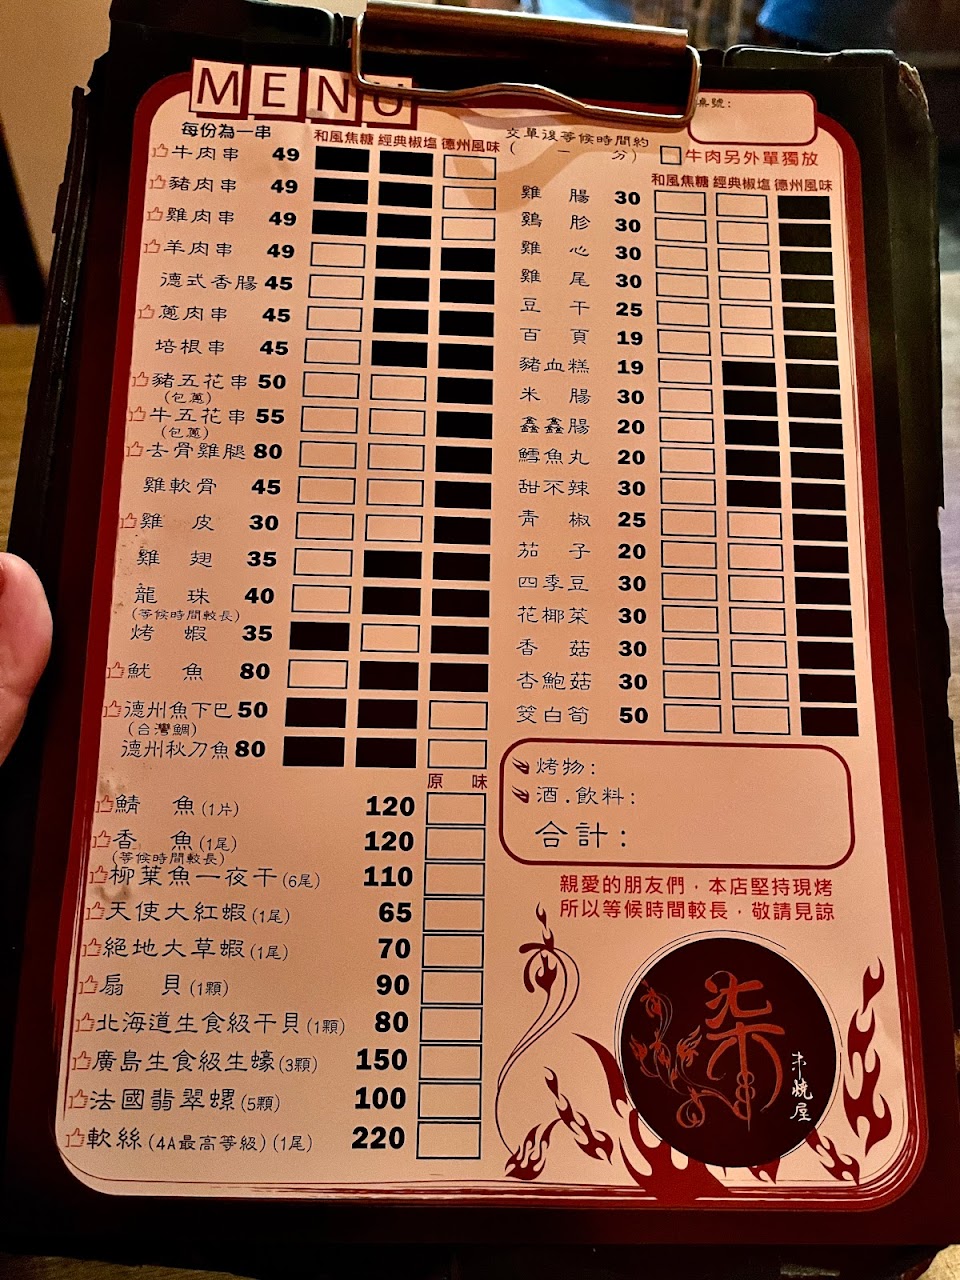 MENU
每份為一串
和風焦糖 經典椒塩 德州風味
牛肉串 49
豬肉串 49
雞肉串 49
羊肉串 49
德式香腸 45
蔥肉串 45
培根串 45
豬五花串 50
(包蔥)
牛五花串 55
(包蔥)
去骨雞腿 80
雞軟骨 45
雞皮 30
雞翅 35
龍珠 40
(等候時間較長)
烤蝦 35
魷魚 80
德州魚下巴 50
(台灣鯛)
德州秋刀魚 80
原味
鯖魚(1片) 120
香魚(1尾) 120
(等候時間較長)
柳葉魚一夜干(6尾) 110
天使大紅蝦(1尾) 65
絕地大草蝦(1尾) 70
扇貝(1顆) 90
北海道生食級干貝(1顆) 80
廣島生食級生蠔(3顆) 150
法國翡翠螺(5顆) 100
軟絲(4A最高等級)(1尾) 220
桌號:
交單後等候時間約
( 分)
牛肉另外單獨放
和風焦糖 經典椒塩 德州風味
雞腸 30
鷄胗 30
雞心 30
雞尾 30
豆干 25
百頁 19
豬血糕 19
米腸 30
鑫鑫腸 20
鱈魚丸 20
甜不辣 30
青椒 25
茄子 20
四季豆 30
花椰菜 30
香菇 30
杏鮑菇 30
筊白筍 50
烤物:
酒.飲料:
合計:
親愛的朋友們，本店堅持現烤
所以等候時間較長，敬請見諒
柒
串燒屋